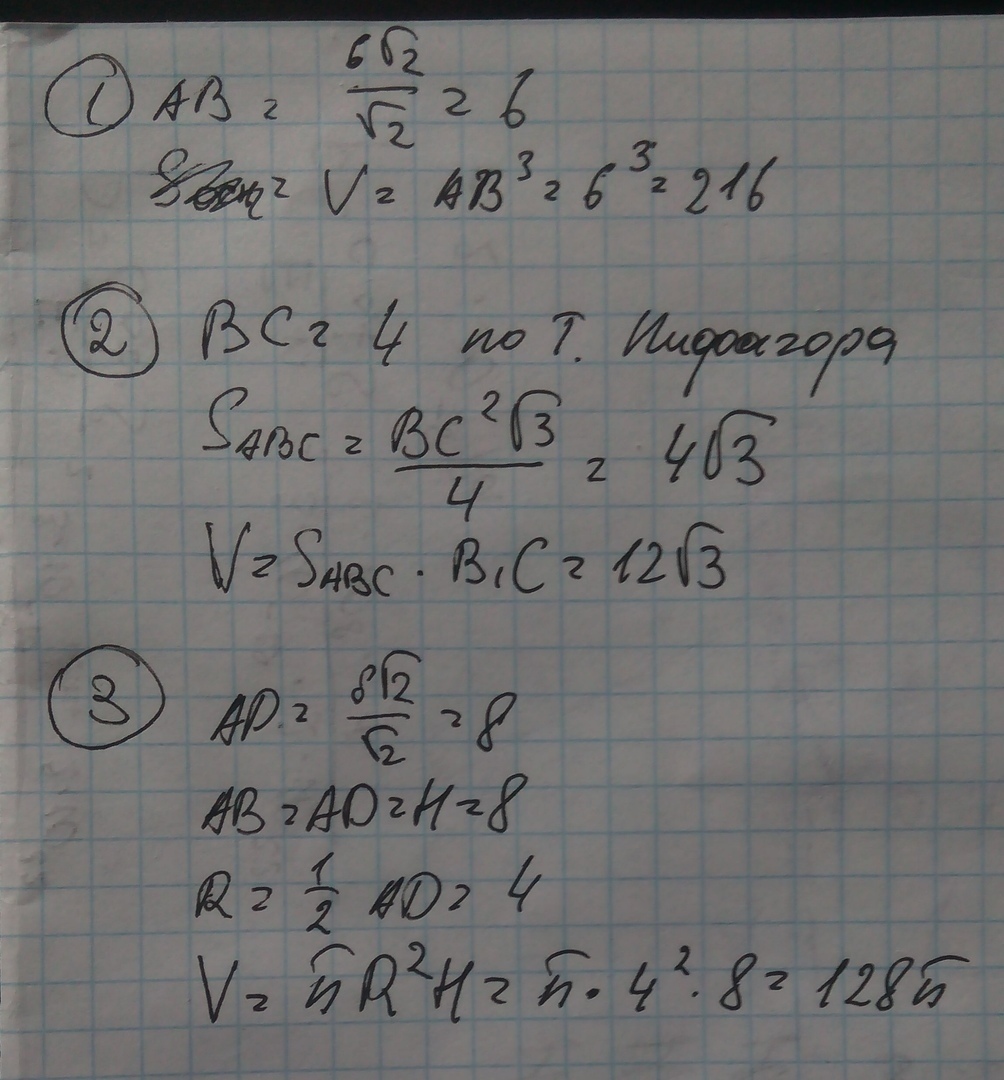 ① AB = 6√2/√2 = 6
V = AB³ = 6³ = 216
② BC = 4 по Т. Пифоагора
S_ABC = BC²√3/4 = 4√3
V = S_ABC · B₁C = 12√3
③ AD = 8√2/√2 = 8
AB = AD = H = 8
R = 1/2 AD = 4
V = πR²H = π · 4² · 8 = 128π